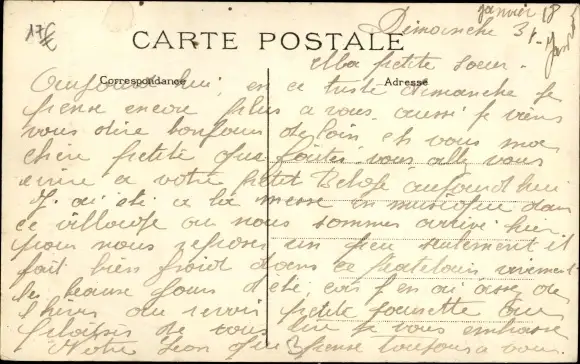 17€
janvier 18
Dimanche 31
CARTE POSTALE
Ma petite soeur.
Correspondance
Adresse
Aujourd'hui, en ce triste dimanche je
pense encore plus a vous aussi je viens
vous dire bonjour de loin et vous ma
chere petite que faites vous, allez vous
ecrire a votre petit aujourd'hui
J'ai été a la messe en musique dans
ce village ou nous sommes arrivé hier
pour nous reposer un peu seulement il
fait bien froid dans ce vivement
les beaux jours d'été, car j'en ai assez de
l'hiver au revoir petite que
plaisir de vous lire je vous embrasse
Votre Leon qui pense toujours a vous.